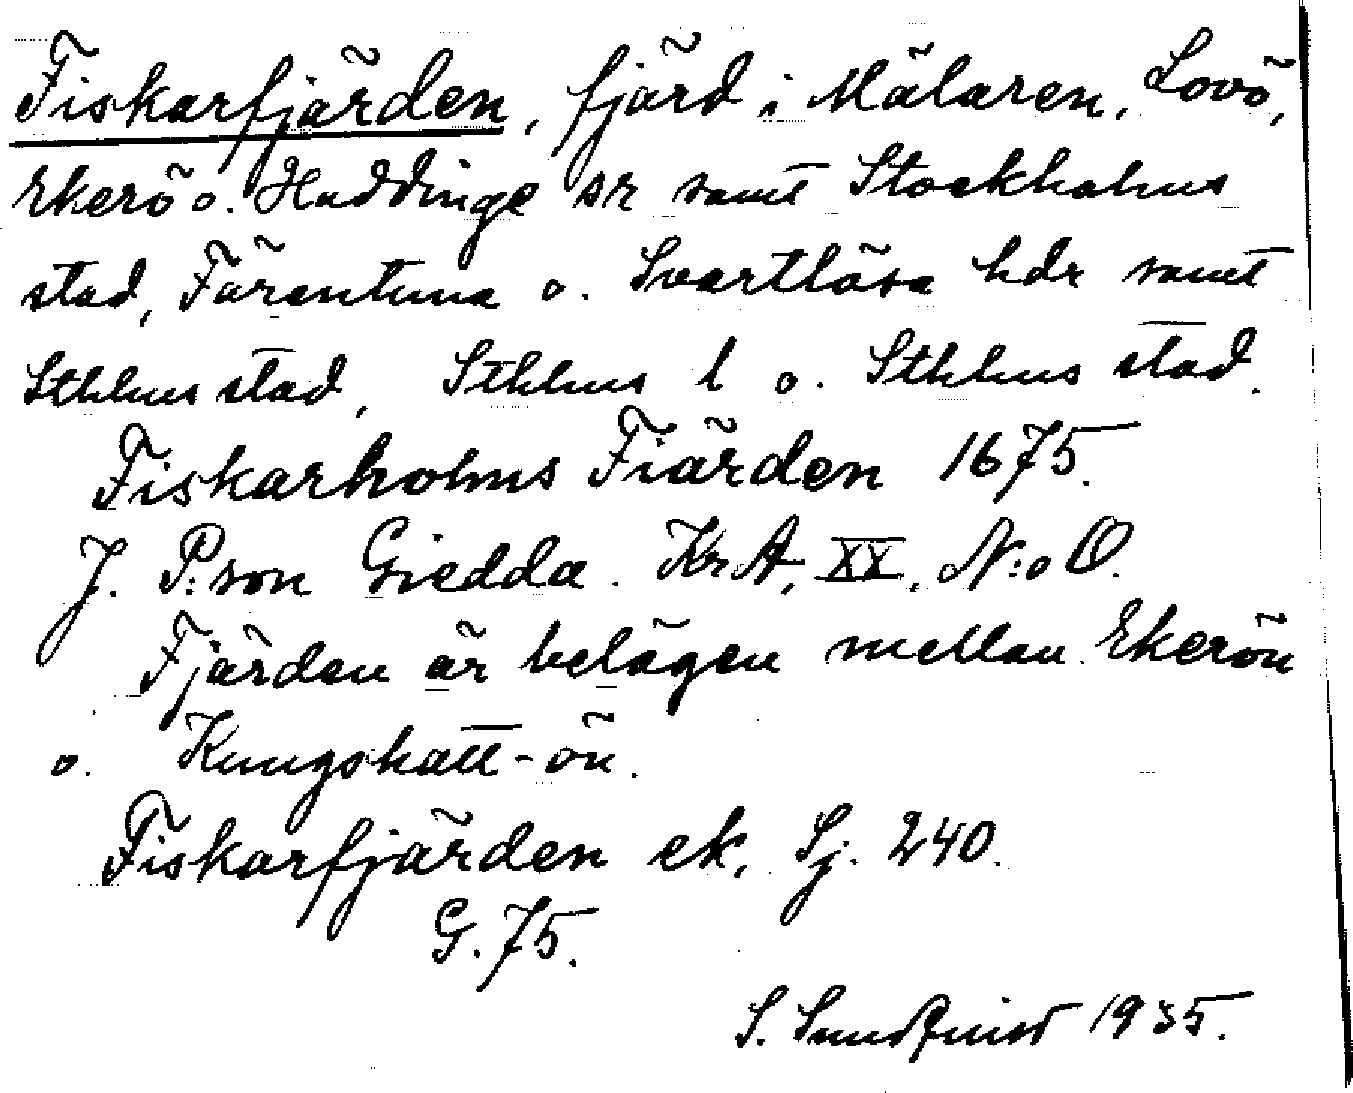 Fiskarfjärden, fjärd i Mälaren, Lovö,
Ekerö o. Huddinge sr samt Stockholms
stad, Färentuna o. Svartlösa hdr samt
Sthlms stad, Sthlms l o. Sthlms stad.
Fiskarholms Fiärden 1675.
J. P:son Giedda. KrA, XX, N:o O.
Fjärden är belägen mellan Ekerön
o. Kungshatt-ön.
Fiskarfjärden ek, Sj. 240.
G. 75.
S. Sundquist 1935.